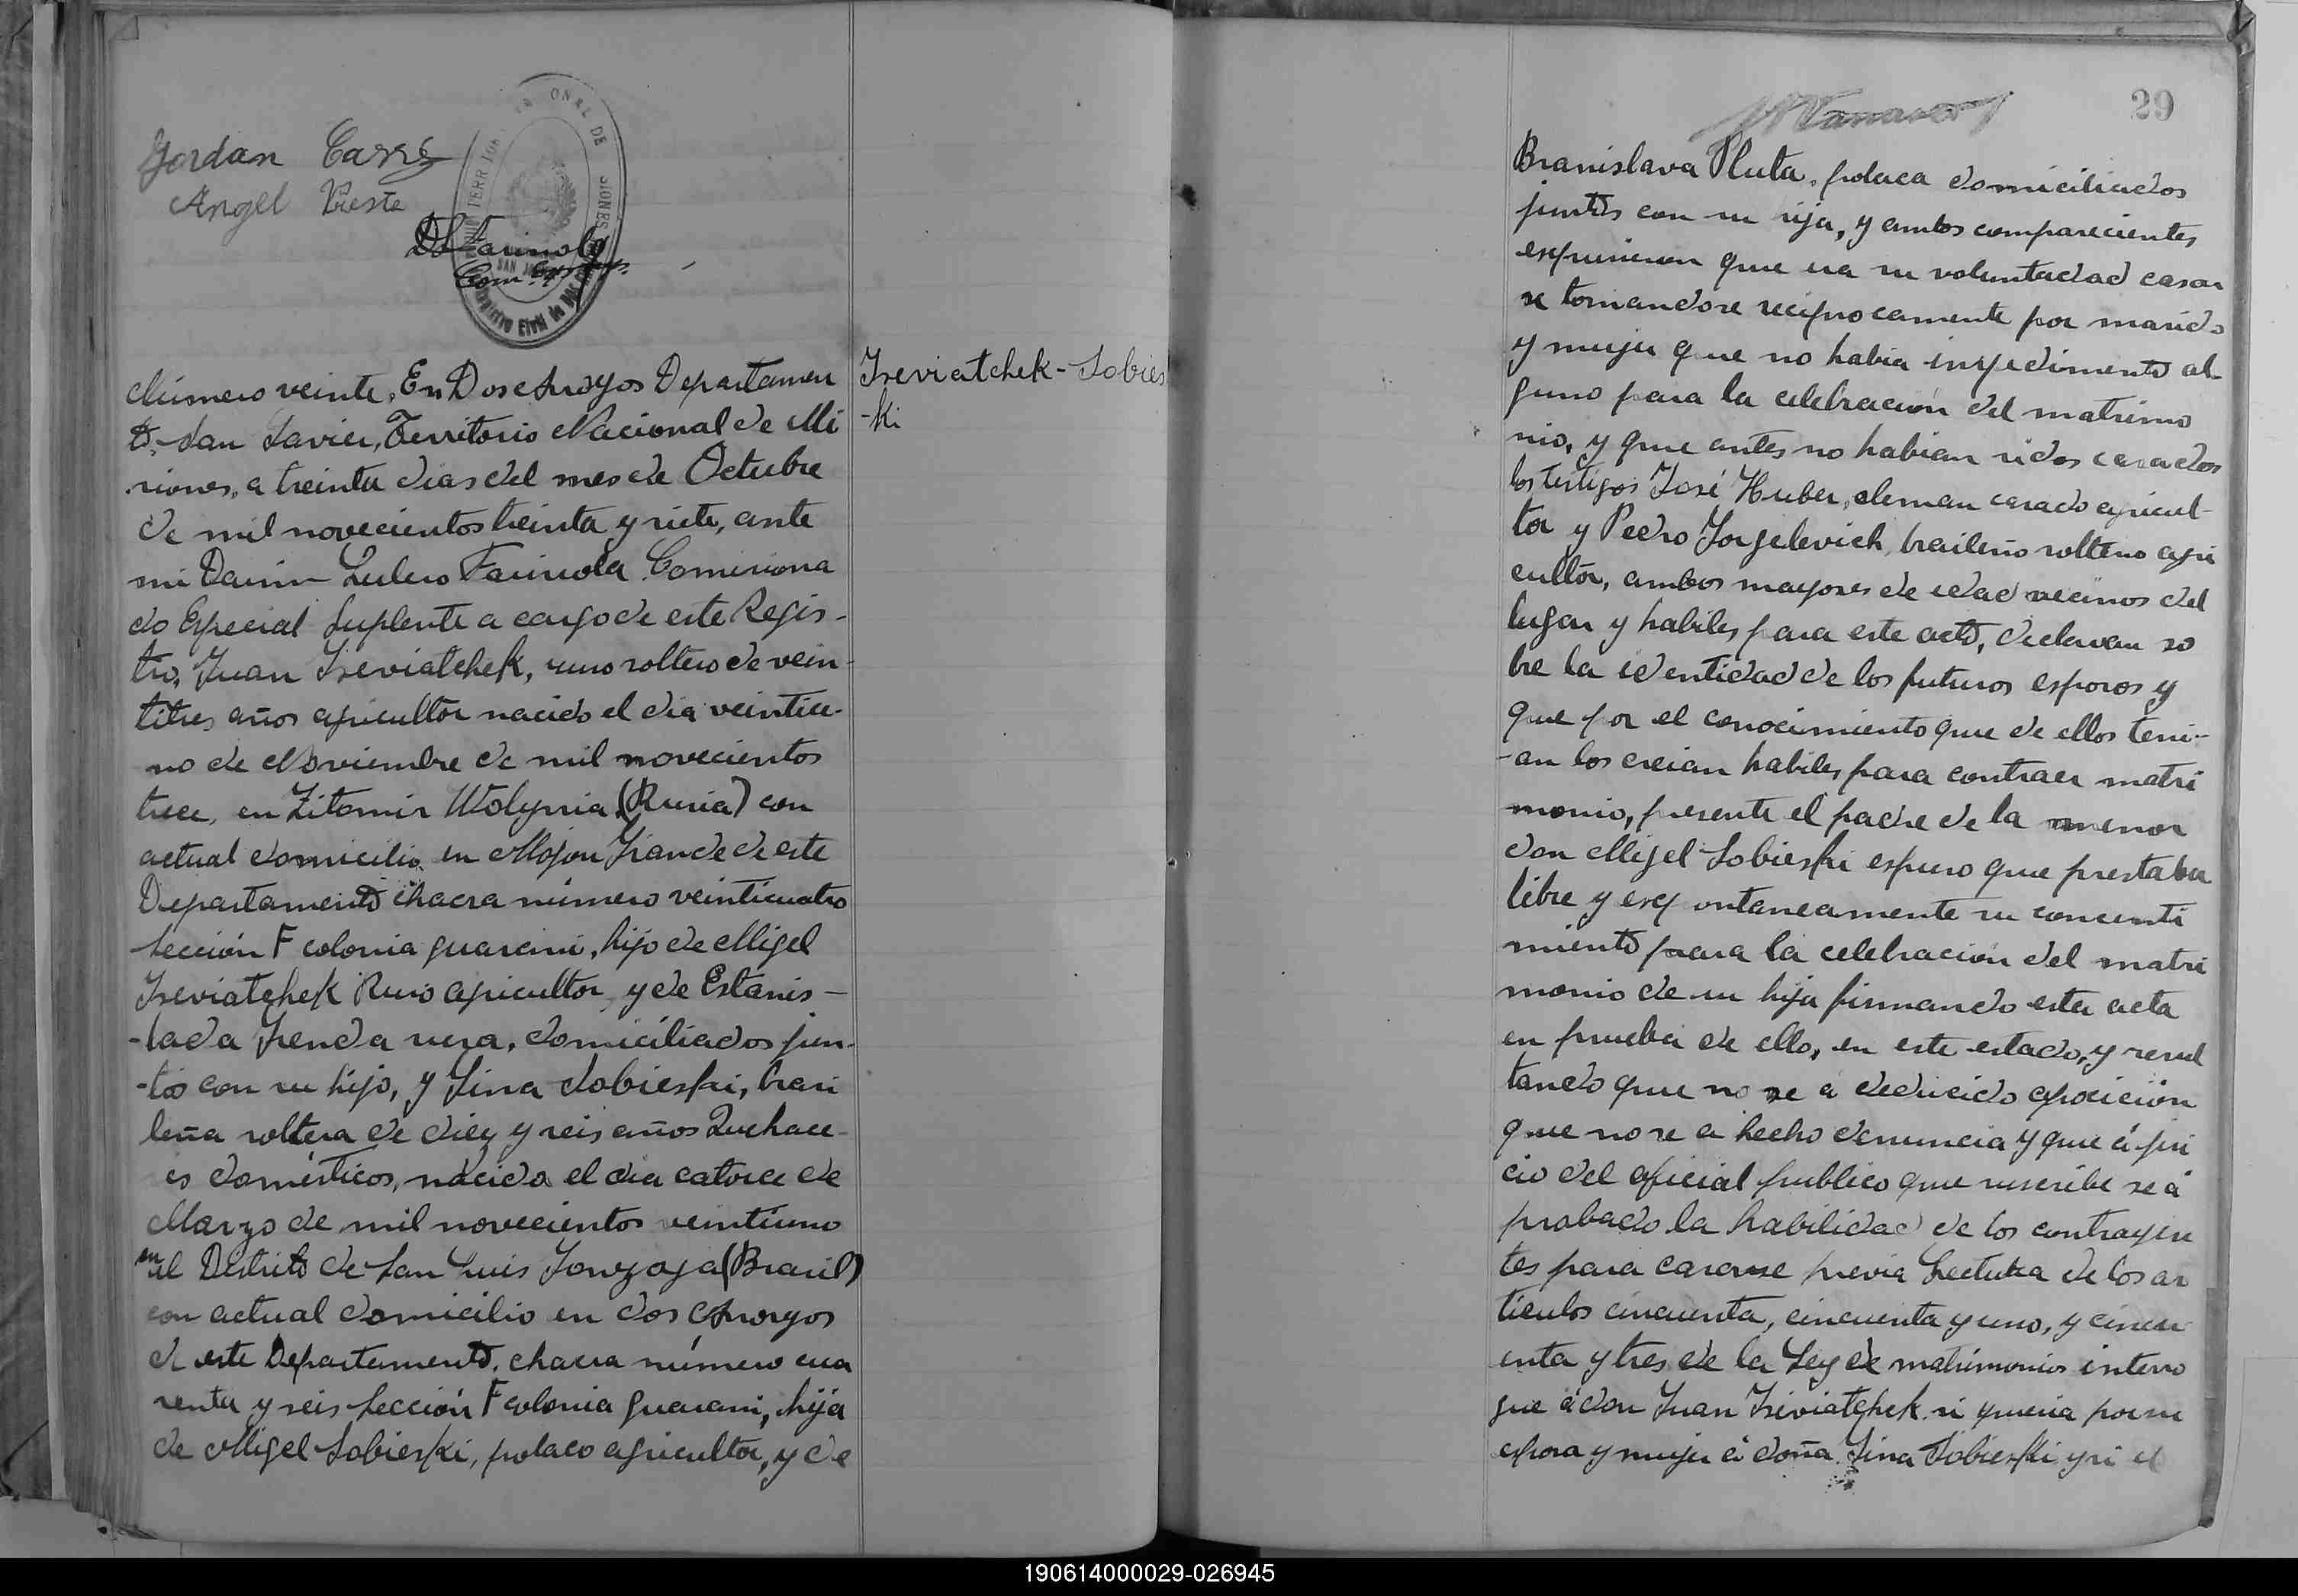 Jordan Carré
Angel Prieste
D L Farinola
Com. Esp.
REGISTRO CIVIL DE MISIONES
SAN JAVIER
Número veinte, En Dos Arroyos Departamen
to San Javier, Territorio Nacional de Mi
siones, a treinta dias del mes de Octubre
de mil novecientos treinta y siete, ante
mi Darin Lulero Farinola Comisiona
do Especial Suplente a cargo de este Regis-
tro, Juan Iseviatchek, ruso soltero de vein-
titres años agricultor nacido el dia veintiu-
no de Noviembre de mil novecientos
trece, en Zitomir Wolynia (Rusia) con
actual domicilio en Mojon Grande de este
Departamento chacra número veinticuatro
sección F colonia guarani, hijo de Migel
Iseviatchek Ruso agricultor y de Estanis-
-lada Grenda rusa, domiciliados jun-
-tos con su hijo, y Gina Sobieski, brasi
leña soltera de diez y seis años Quehace-
es domésticos, nacida el dia catorce de
Marzo de mil novecientos veintiuno
en el Distrito de San Luis Gonzaga (Brasil)
con actual domicilio en dos Arroyos
de este Departamento, chacra número cua
renta y seis sección F colonia guarani, hija
de Migel Sobieski, polaco agricultor, y de
Iseviatchek - Sobies
-ki
29
Branislava Pluta, polaca domiciliados
juntos con su ija, y ambos comparecientes
espusieron que era su voluntad casar
se tomandose reciprocamente por marido
y mujer que no habia inpedimento al-
guno para la celebración del matrimo
nio, y que antes no habian sidos casados
los testigos José Huber, aleman casado agricul-
tor y Pedro Jorgelevich, brasileño soltero agri
cultor, ambos mayores de edad vecinos del
lugar y habiles para este acto, declaran so
bre la identidad de los futuros esposos y
que por el conocimiento que de ellos teni-
-an los creian habiles para contraer matri
monio, presente el padre de la menor
don Migel Sobieski espuso que prestaba
libre y espontaneamente su consenti
miento para la celebración del matri
monio de su hija firmando esta acta
en prueba de ello, en este estado, y resul
tando que no se a deducido oposición
que no se a hecho denuncia y que á jui
cio del oficial publico que suscribe se á
probado la habilidad de los contrayen
tes para casarse previa Lectura de los ar
ticulos cincuenta, cincuenta y uno, y cincu
enta y tres de la Ley de matrimonios interro
gue á don Juan Iseviatchek si queria por su
esposa y mujer á doña Gina Sobieski y si el
190614000029-026945